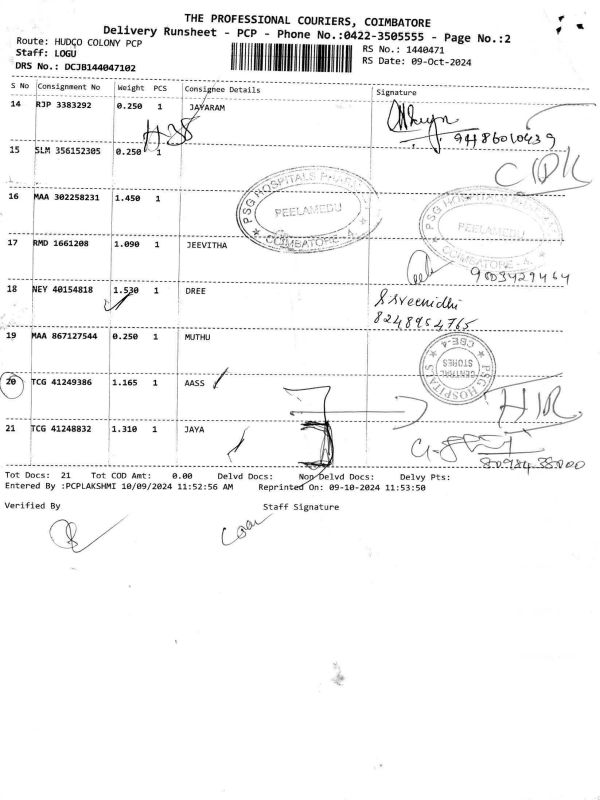 THE PROFESSIONAL COURIERS, COIMBATORE
Delivery Runsheet - PCP - Phone No.:0422-3505555 - Page No.:2
Route: HUDCO COLONY PCP
RS No.: 1440471
Staff: LOGU
RS Date: 09-Oct-2024
DRS No.: DCJB144047102
S No Consignment No Weight PCS Consignee Details Signature
14 RJP 3383292 0.250 1 JAYARAM
9486010439
15 SLM 356152305 0.250 1
16 MAA 302258231 1.450 1
PSG HOSPITALS
PEELAMEDU
COIMBATORE - 4.
PSG HOSPITALS
PEELAMEDU
COIMBATORE - 4.
17 RMD 1661208 1.090 1 JEEVITHA
9003429464
18 NEY 40154818 1.530 1 DREE
S. Sreenidhi
8248954765
19 MAA 867127544 0.250 1 MUTHU
PSG HOSPITALS
CENTRAL
STORES
CBE-4
20 TCG 41249386 1.165 1 AASS
21 TCG 41248832 1.310 1 JAYA
Tot Docs: 21 Tot COD Amt: 0.00 Delvd Docs: Non Delvd Docs: Delvy Pts:
Entered By :PCPLAKSHMI 10/09/2024 11:52:56 AM Reprinted On: 09-10-2024 11:53:50
Verified By Staff Signature